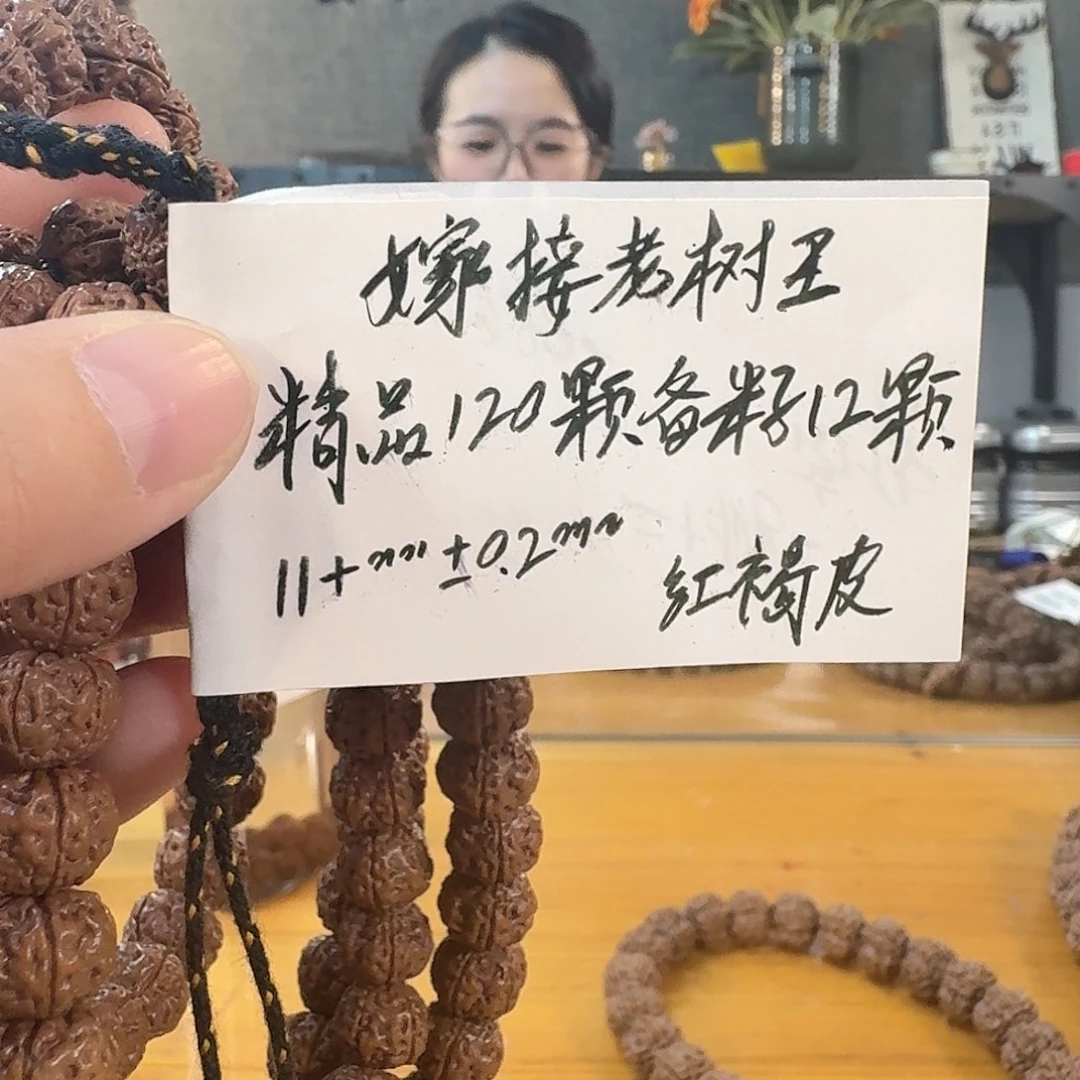 嫁接老树王
精品120颗备籽12颗
11+mm±0.2mm 红褐皮